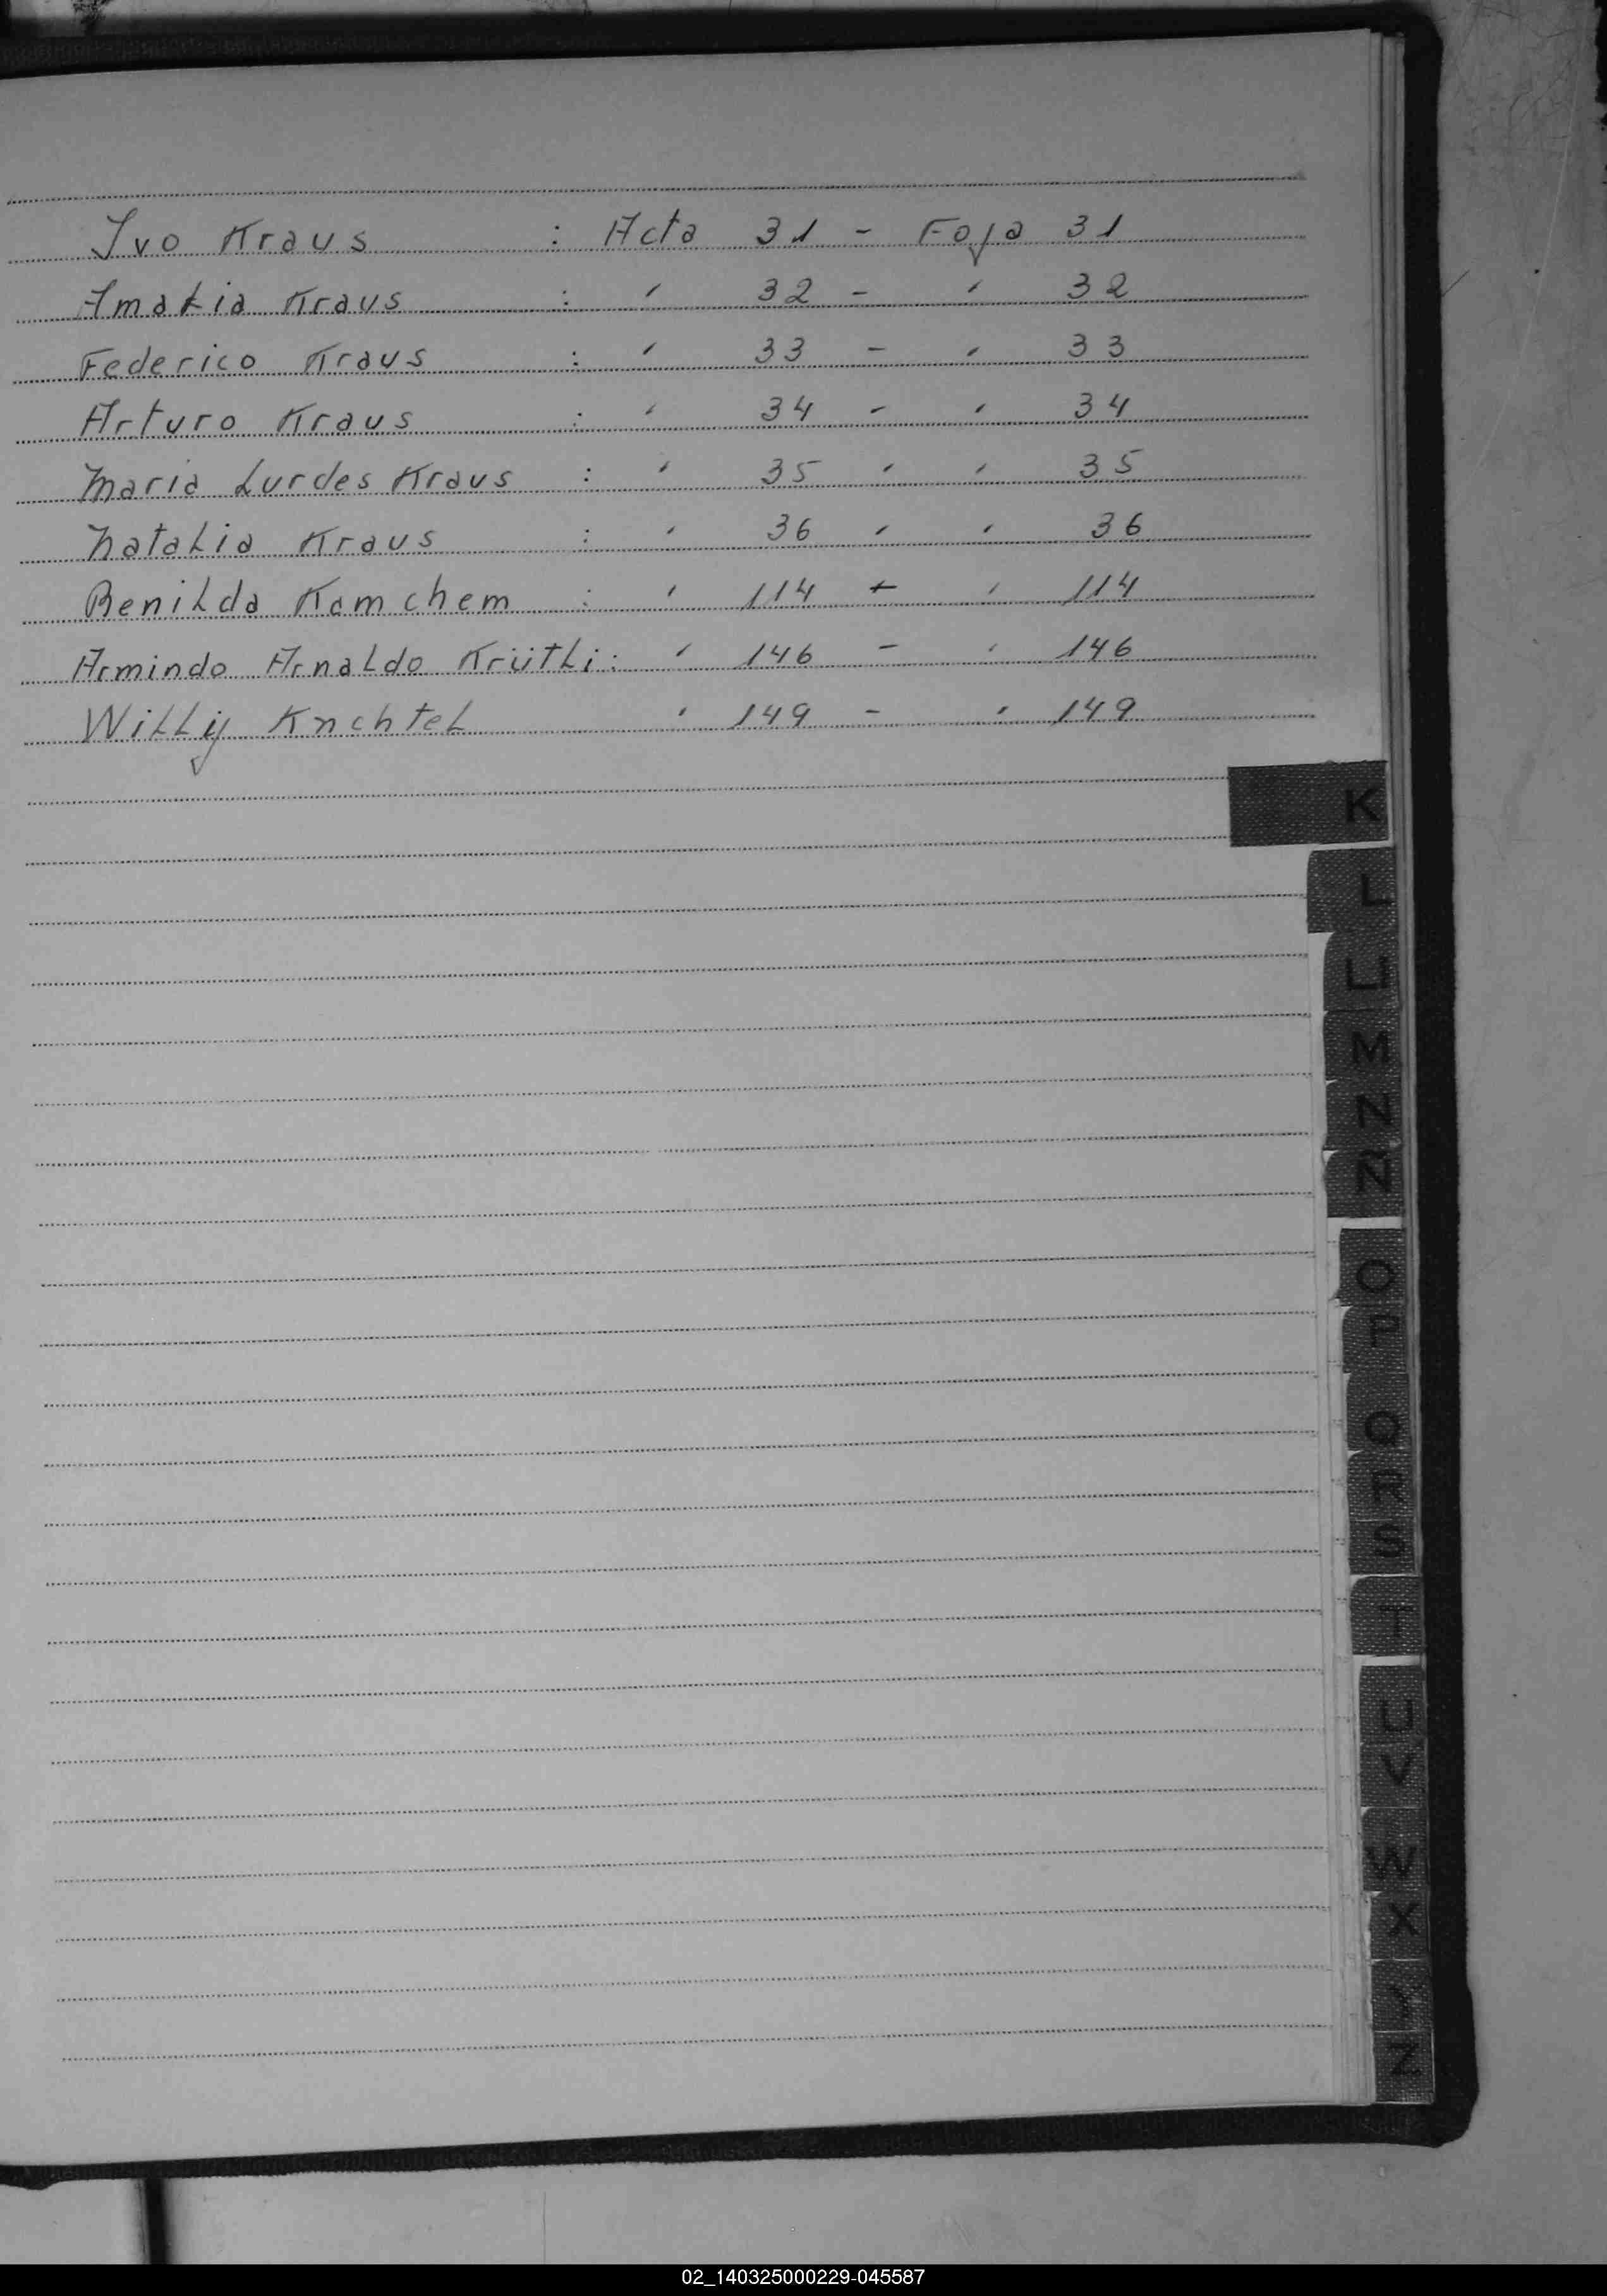 Ivo Kraus : Acta 31 - Foja 31
Amalia Kraus : " 32 - " 32
Federico Kraus : " 33 - " 33
Arturo Kraus : " 34 - " 34
Maria Lurdes Kraus : " 35 " " 35
Natalia Kraus : " 36 " " 36
Benilda Kamchem : " 114 - " 114
Armindo Arnaldo Krütli : " 146 - " 146
Willy Knchtel " 149 - " 149
K
L
LL
M
N
Ñ
O
P
Q
R
S
T
U
V
W
X
Y
Z
02_140325000229-045587